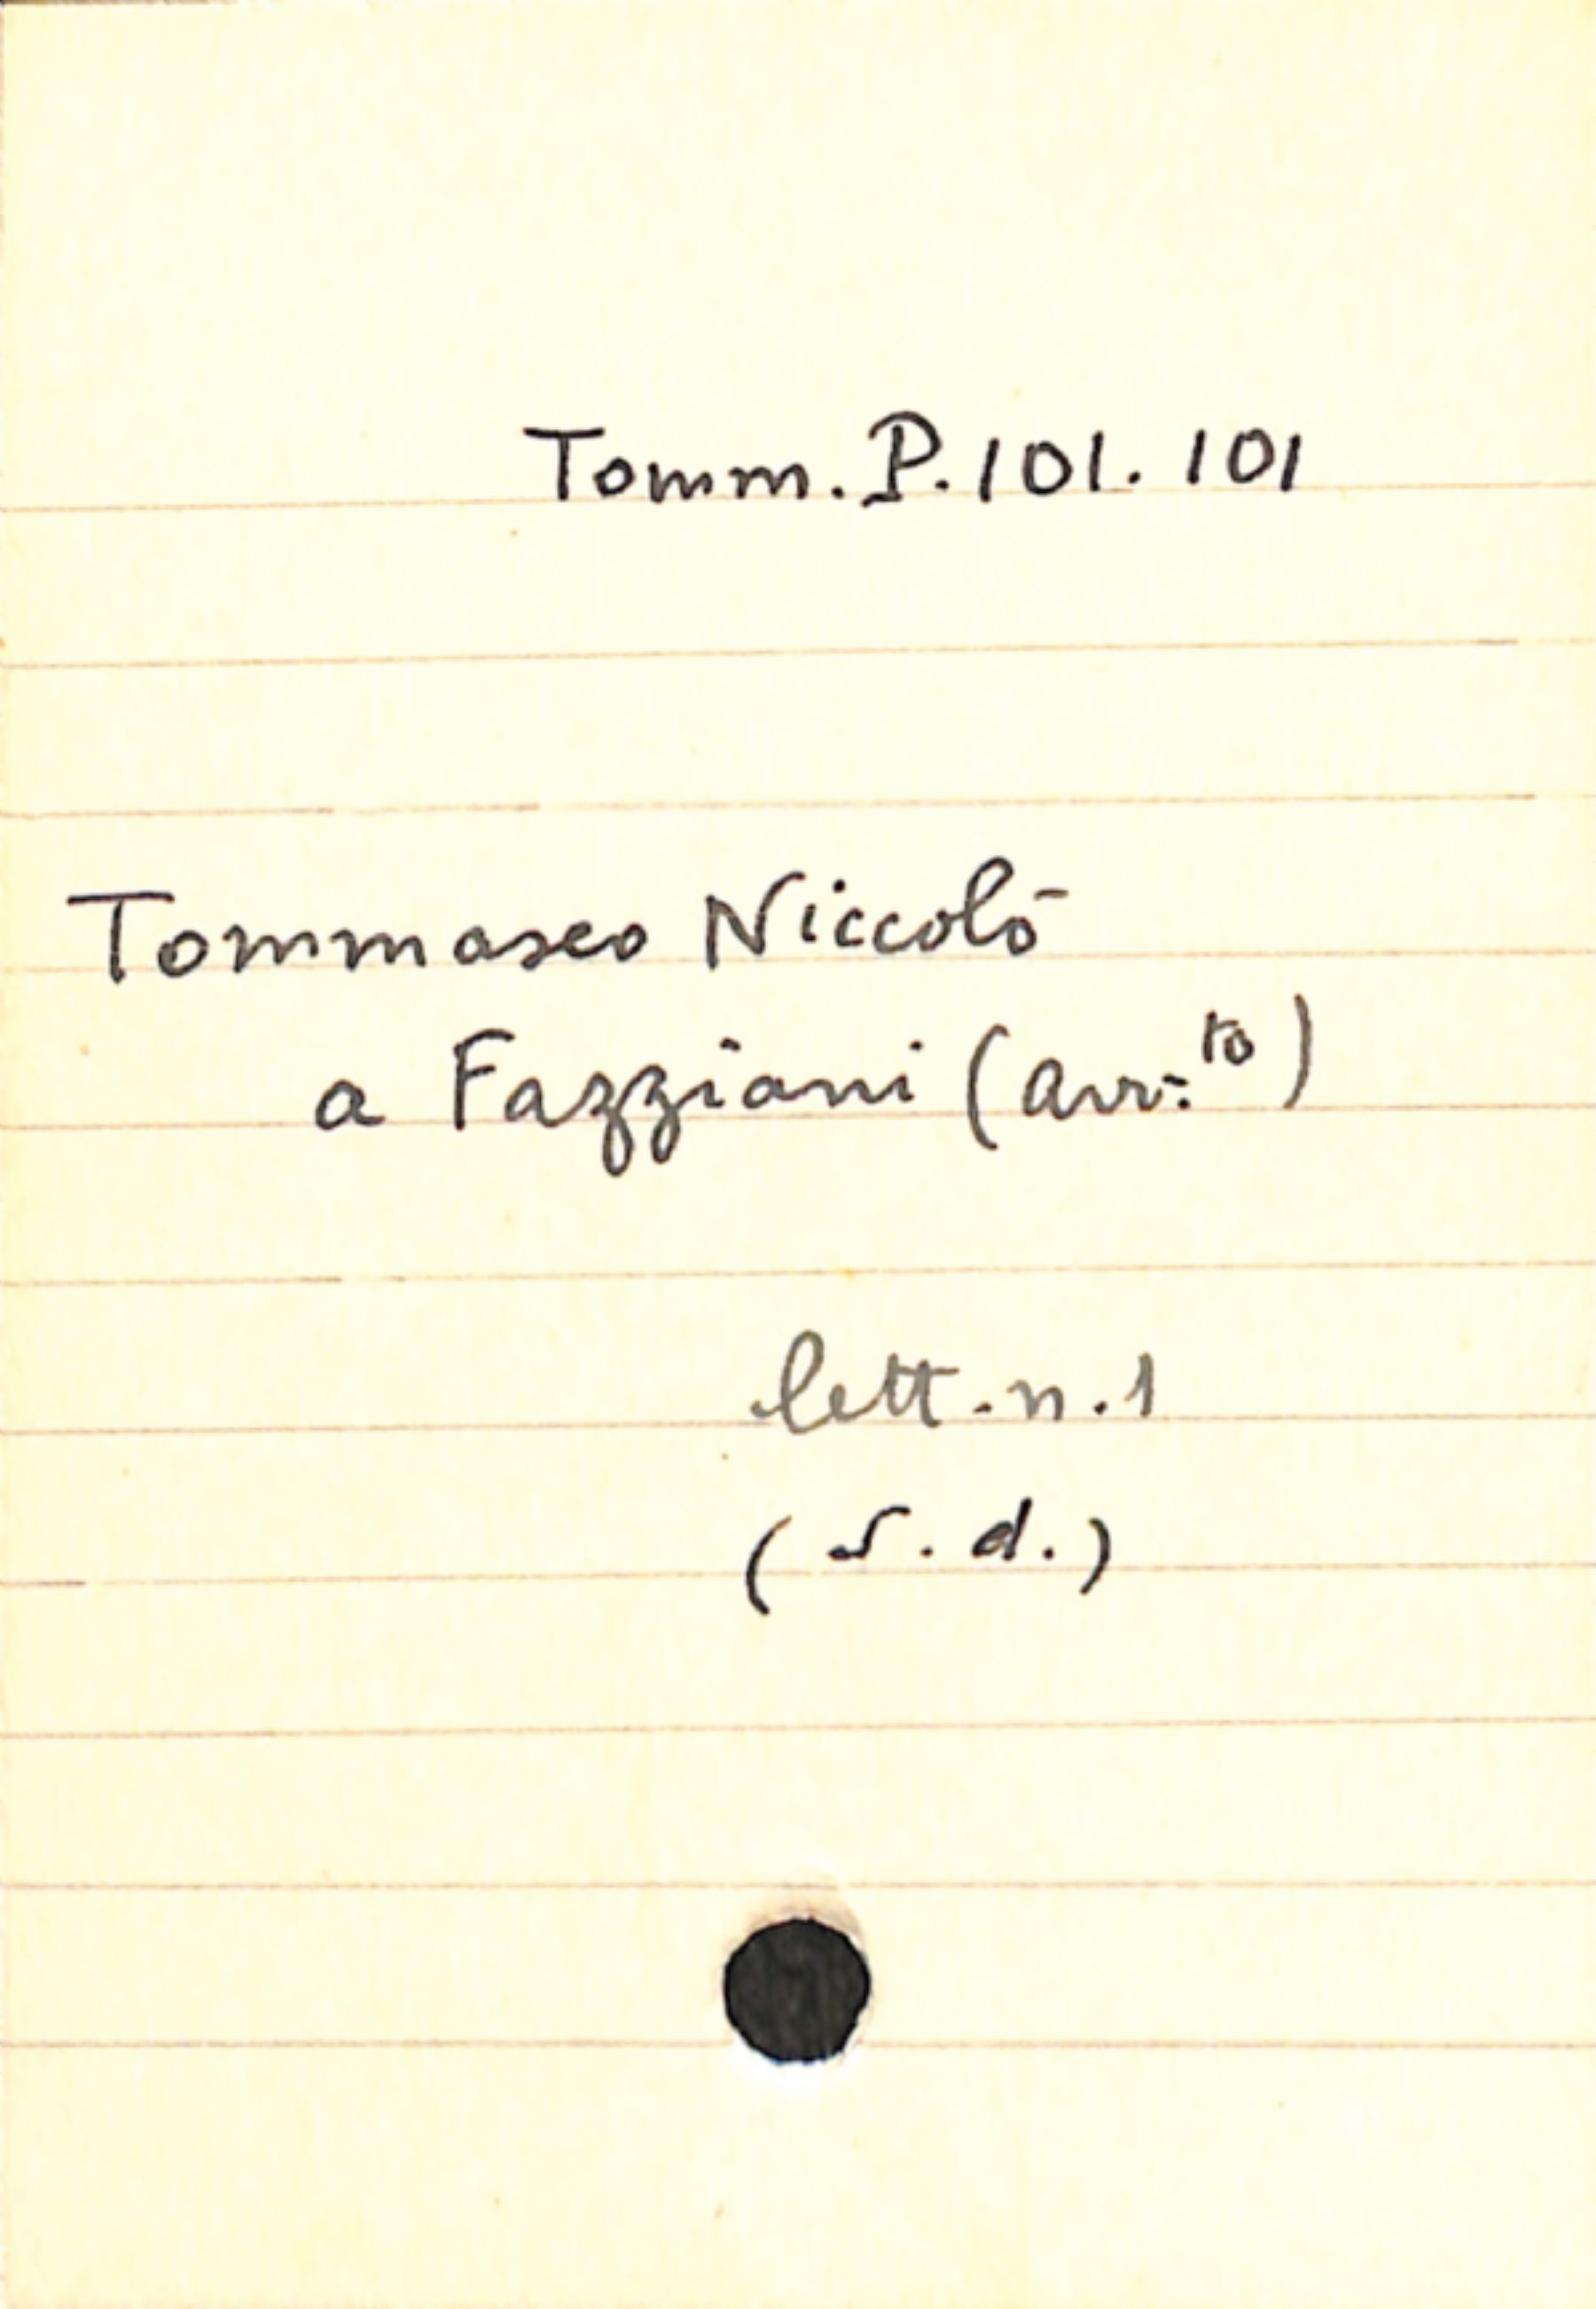 Tomm. P. 101. 101
Tommaseo Niccolò
a Fazziani (avv:to)
lett. n. 1
(s. d.)